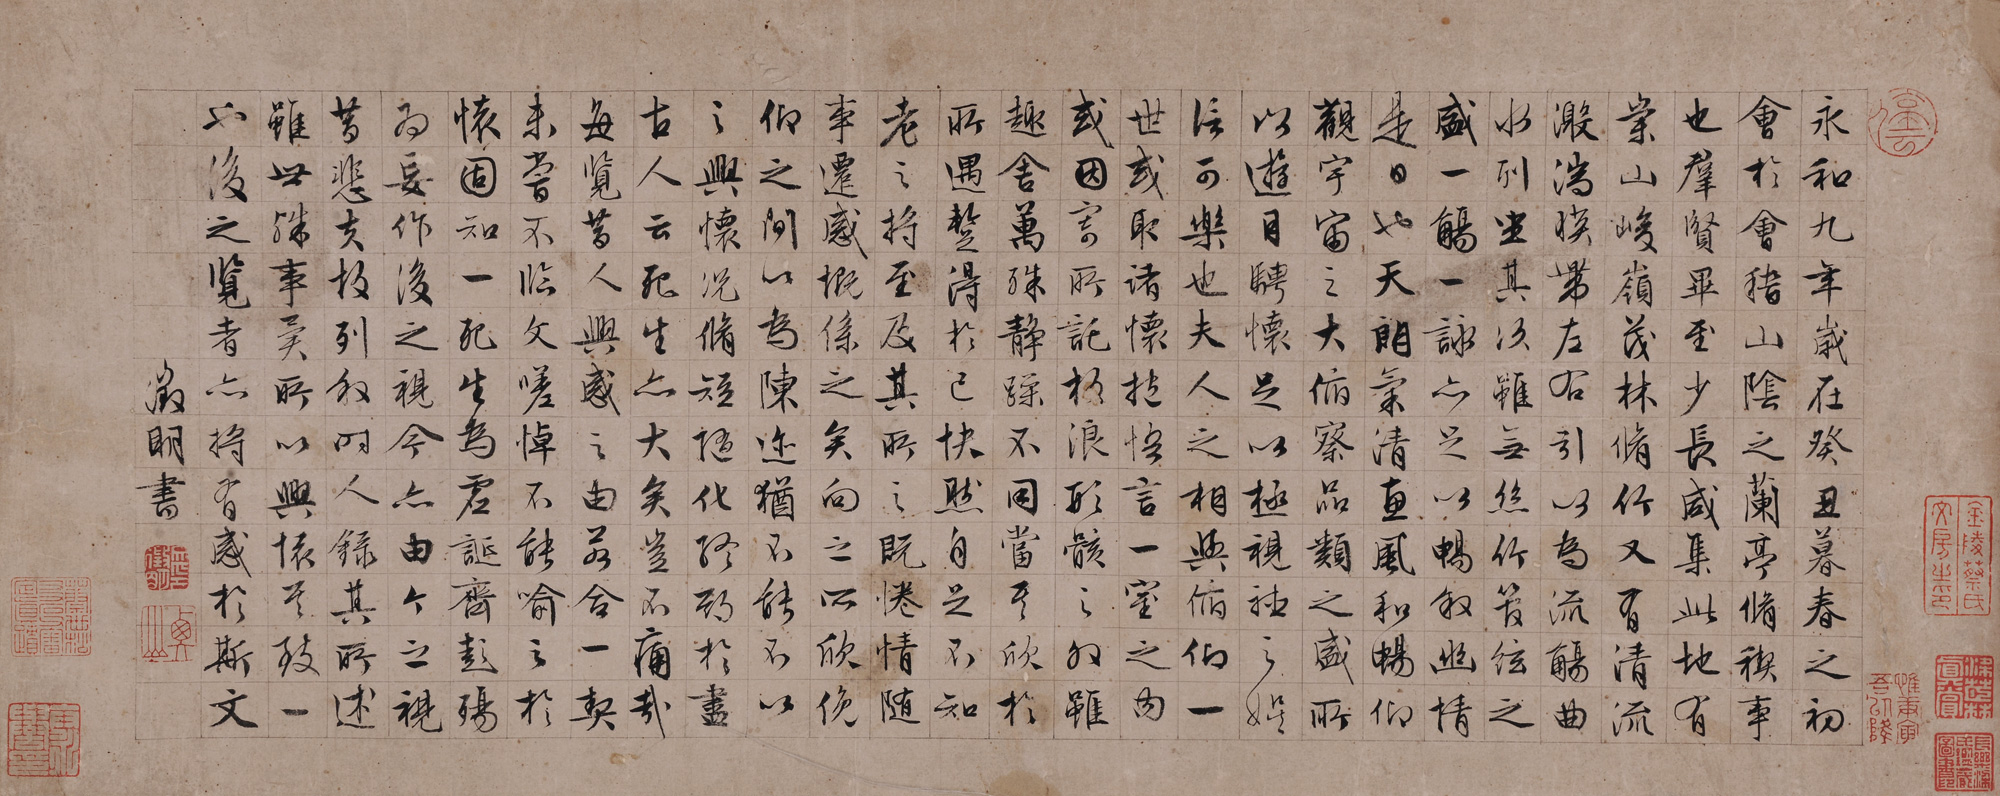 永和九年歲在癸丑暮春之初
會於會稽山陰之蘭亭脩禊事
也羣賢畢至少長咸集此地有
崇山峻嶺茂林脩竹又有清流
激湍暎帶左右引以為流觴曲
水列坐其次雖無絲竹管弦之
盛一觴一詠亦足以暢敘幽情
是日也天朗氣清惠風和暢仰
觀宇宙之大俯察品類之盛所
以遊目騁懷足以極視聽之娛
信可樂也夫人之相與俯仰一
世或取諸懷抱悟言一室之內
或因寄所託放浪形骸之外雖
趣舍萬殊靜躁不同當其欣於
所遇蹔得於己快然自足不知
老之將至及其所之既惓情隨
事遷感慨係之矣向之所欣俛
仰之間以為陳迹猶不能不以
之興懷況脩短隨化終期於盡
古人云死生亦大矣豈不痛哉
每覽昔人興感之由若合一契
未嘗不臨文嗟悼不能喻之於
懷固知一死生為虛誕齊彭殤
為妄作後之視今亦由今之視
昔悲夫故列敘時人錄其所述
雖世殊事異所以興懷其致一
也後之覽者亦將有感於斯文
徵明書
停雲
金陵蔡氏文房之印
惟庚寅吾以降